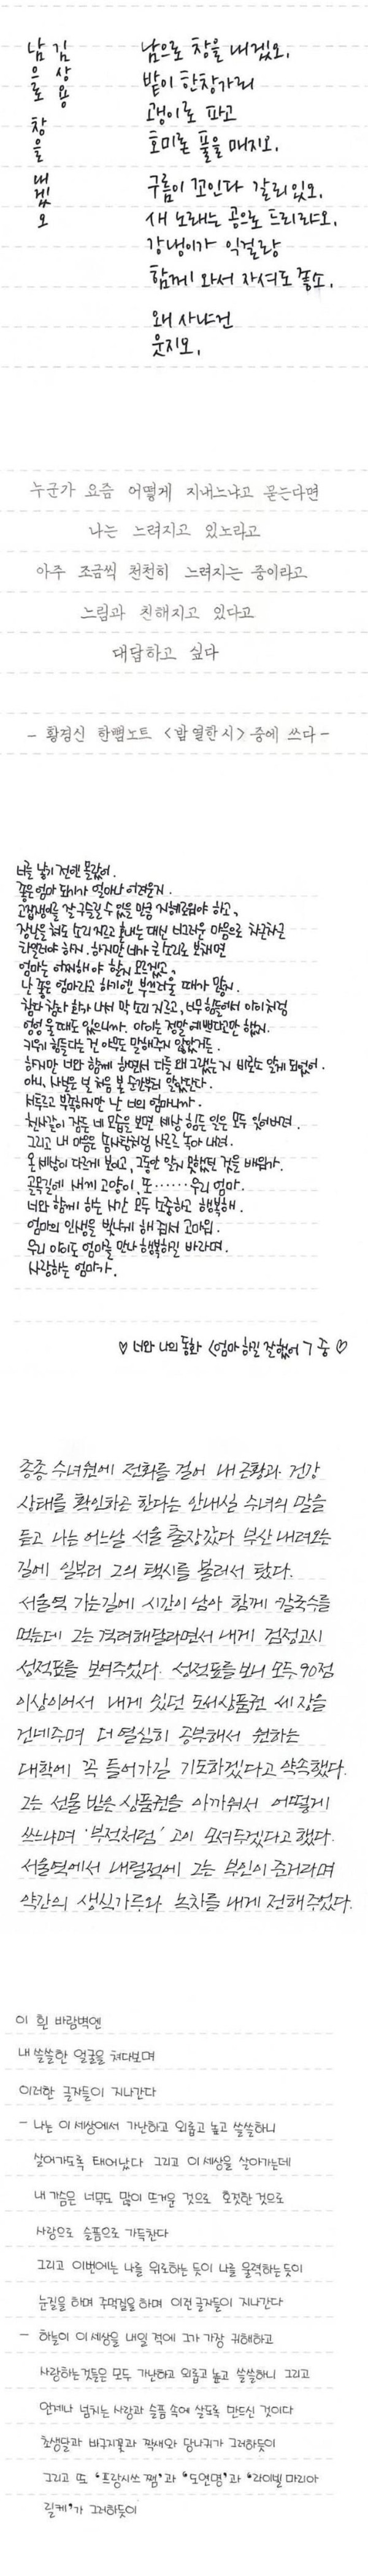 김상용
남으로 창을 내겠오
남으로 창을 내겠오.
밭이 한참가리
괭이로 파고
호미론 풀을 매지오.
구름이 꼬인다 갈리 있오.
새 노래는 공으로 드리랴오.
강냉이가 익걸랑
함께 와서 자셔도 좋소.
왜 사냐건
웃지오.
누군가 요즘 어떻게 지내느냐고 묻는다면
나는 느려지고 있노라고
아주 조금씩 천천히 느려지는 중이라고
느림과 친해지고 있다고
대답하고 싶다
- 황경신 한뼘노트 <밤 열한 시> 중에 쓰다 -
너를 낳기 전엔 몰랐어.
좋은 엄마 되기가 얼마나 어려운지.
고집쟁이를 잘 구슬릴 수 있을 만큼 지혜로워야 하고,
장난을 쳐도 소리 지르고 화내는 대신 너그러운 마음으로 차근차근
타일러야 하지. 하지만 네가 큰 소리로 보채면
엄마는 어찌해야 할지 모르겠고,
난 좋은 엄마라고 하기엔 부끄러울 때가 많지.
참다 참다 화가 나서 막 소리 지르고, 너무 힘들어서 아이처럼
엉엉 울 때도 있으니까. 아이는 정말 예쁘다고만 했지.
키우기 힘들다는 건 아무도 말해주지 않았거든.
하지만 너와 함께 하면서 다들 왜 그랬는지 비로소 알게 되었어.
아니, 사실은 널 처음 본 순간부터 알았단다.
서투르고 부족하지만 난 너의 엄마니까.
천사같이 잠든 네 모습을 보면 세상 힘든 일은 모두 잊어버려.
그리고 내 마음은 솜사탕처럼 사르르 녹아 내려.
온 세상이 다르게 보이고, 그동안 알지 못했던 것을 배워가.
골목길에 새끼 고양이, 또······우리 엄마.
너와 함께 하는 시간 모두 소중하고 행복해.
엄마의 인생을 빛나게 해 줘서 고마워.
우리 아이도 엄마를 만나 행복하길 바라며.
사랑하는 엄마가.
♡ 너와 나의 동화 <엄마 하길 잘했어> 중 ♡
종종 수녀원에 전화를 걸어 내 근황과 건강
상태를 확인하곤 한다는 안내실 수녀의 말을
듣고 나는 어느날 서울 출장갔다 부산 내려오는
길에 일부러 그의 택시를 불러서 탔다.
서울역 가는길에 시간이 남아 함께 칼국수를
먹는데 그는 격려해달라면서 내게 검정고시
성적표를 보여주었다. 성적표를 보니 모두 90점
이상이어서 내게 있던 도서상품권 세 장을
건네주며 더 열심히 공부해서 원하는
대학에 꼭 들어가길 기도하겠다고 약속했다.
그는 선물 받은 상품권을 아까워서 어떻게
쓰느냐며 '부적처럼' 고이 모셔두겠다고 했다.
서울역에서 내릴적에 그는 부인이 준거라며
약간의 생식가루와 녹차를 내게 전해주었다.
이 흰 바람벽엔
내 쓸쓸한 얼굴을 쳐다보며
이러한 글자들이 지나간다
- 나는 이 세상에서 가난하고 외롭고 높고 쓸쓸하니
살어가도록 태어났다 그리고 이 세상을 살아가는데
내 가슴은 너무도 많이 뜨거운 것으로 호젓한 것으로
사랑으로 슬픔으로 가득찬다
그리고 이번에는 나를 위로하는 듯이 나를 울력하는 듯이
눈질을 하며 주먹질을 하며 이런 글자들이 지나간다
- 하늘이 이 세상을 내일 적에 그가 가장 귀해하고
사랑하는것들은 모두 가난하고 외롭고 높고 쓸쓸하니 그리고
언제나 넘치는 사랑과 슬픔 속에 살도록 만드신 것이다
초생달과 바구지꽃과 짝새와 당나귀가 그러하듯이
그리고 또 '프랑시쓰 쨈'과 '도연명'과 '라이넬 마리아
릴케'가 그러하듯이